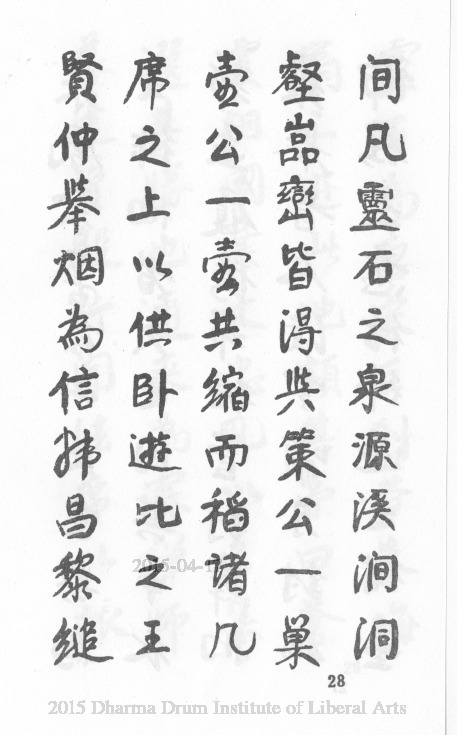 间凡靈石之泉源溪澗洞
壑嵓巒皆得與策公一巢
壺公一壺共縮而稻諸几
席之上以供卧遊比之王
賢仲舉烟為信韩昌黎縋
28
2015-04-1
2015 Dharma Drum Institute of Liberal Arts